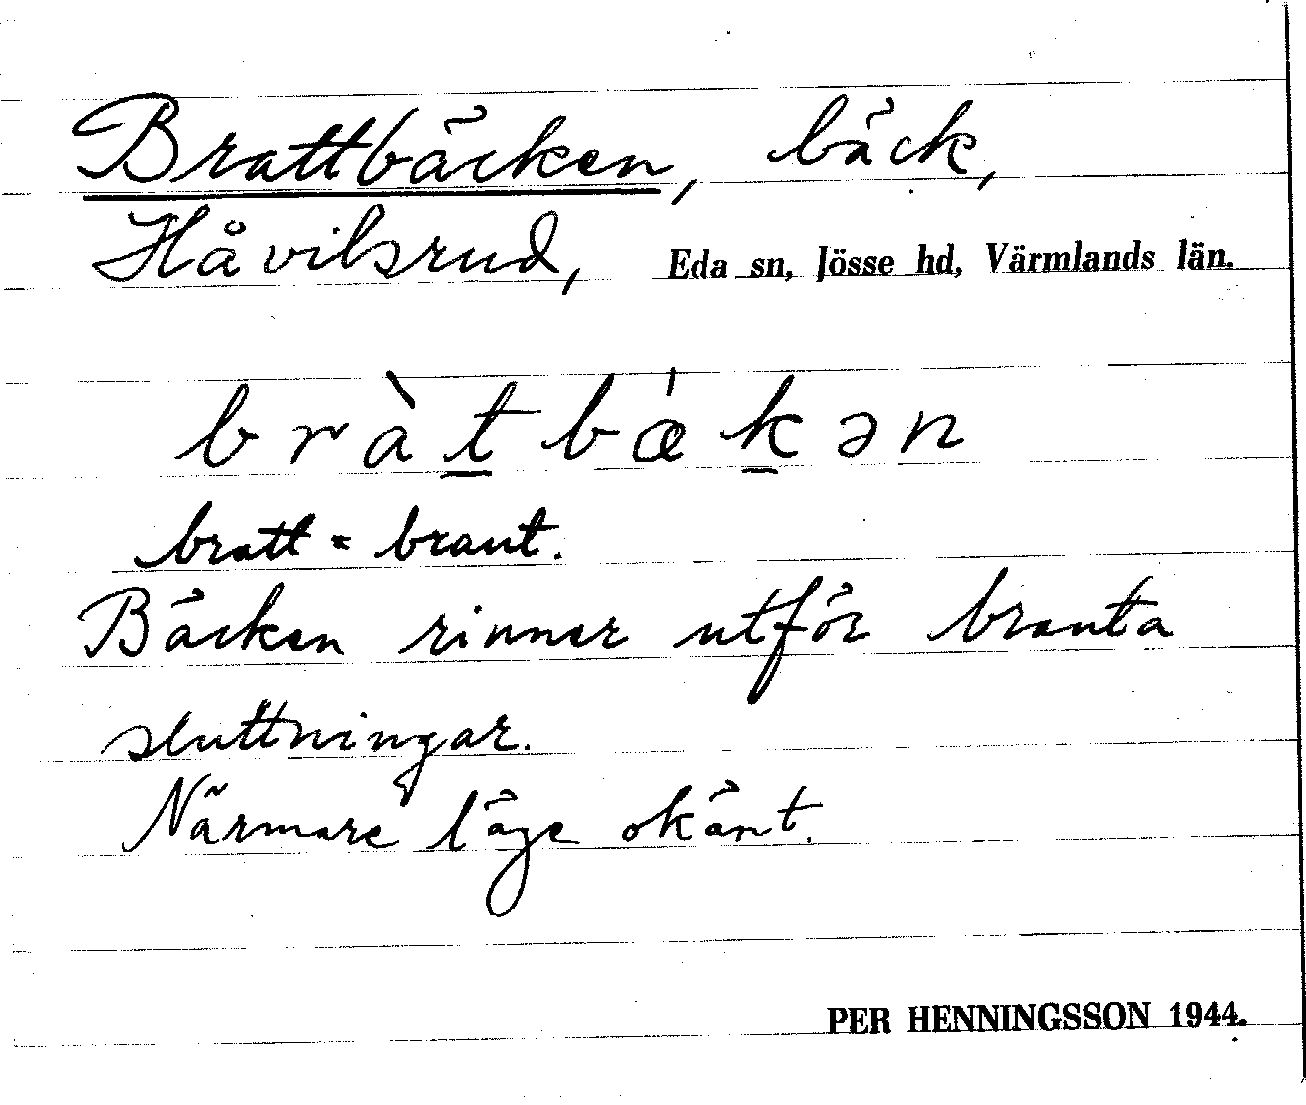 Brattbäcken, bäck,
Håvilsrud, Eda sn, Jösse hd, Värmlands län.
bràt̲bǽk̲ən
bratt = brant.
Bäcken rinner utför branta
sluttningar.
Närmare läge okänt.
PER HENNINGSSON 1944.